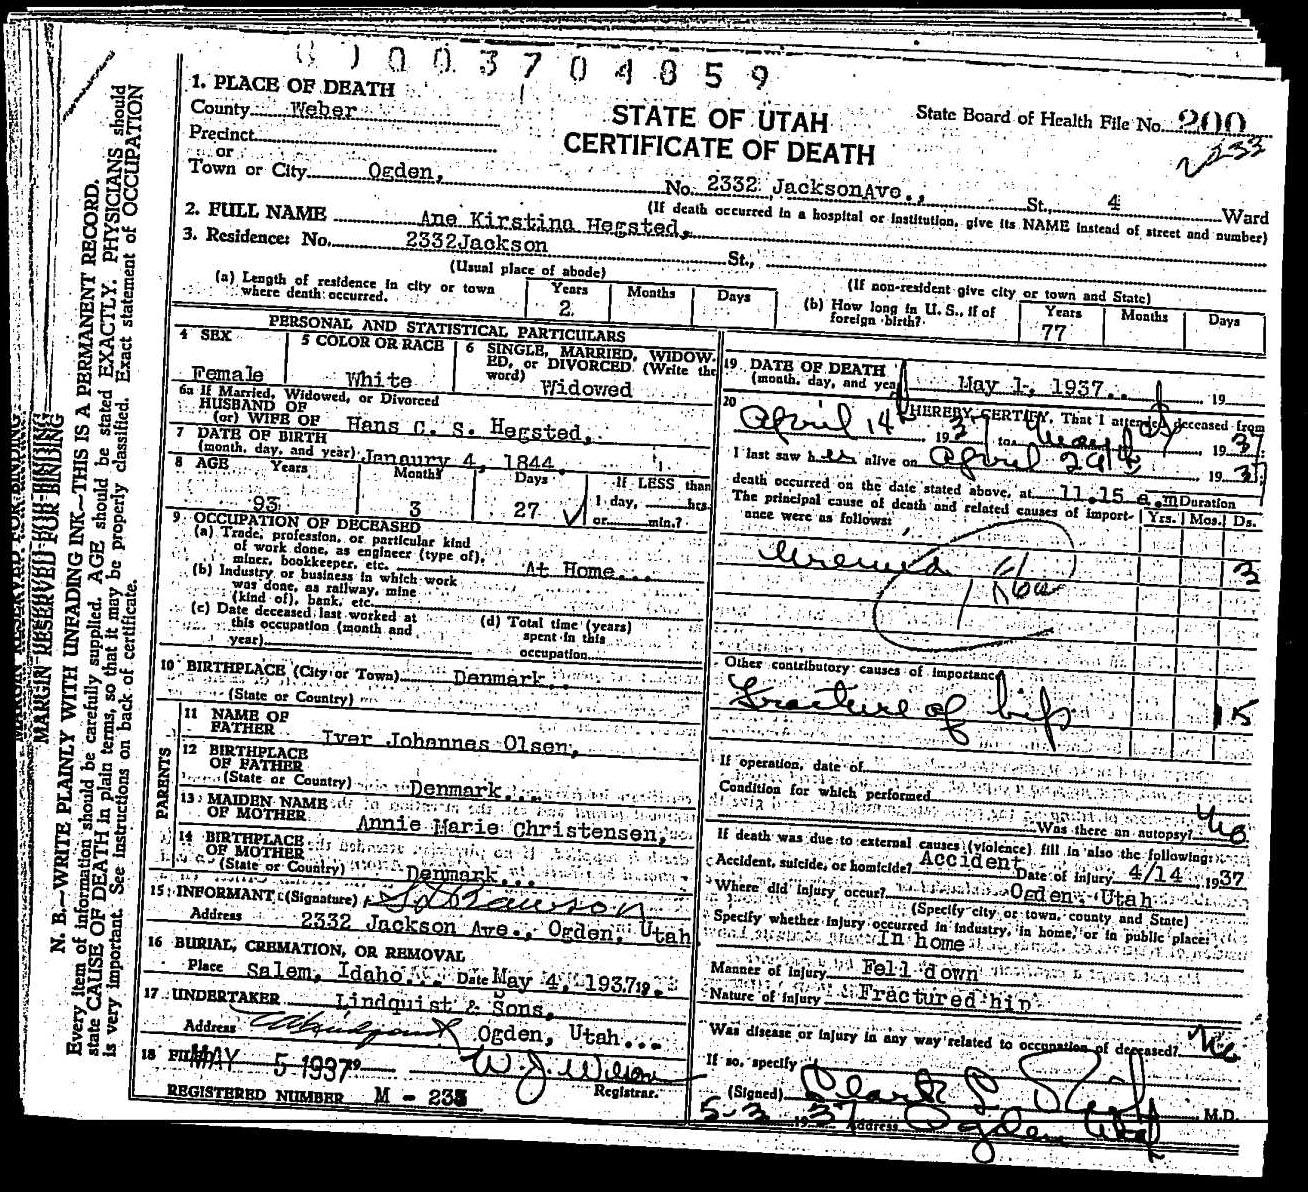 0 0 3 7 0 4 8 5 9
1. PLACE OF DEATH
County Weber
Precinct
or
Town or City Ogden,
STATE OF UTAH
CERTIFICATE OF DEATH
State Board of Health File No. 200
2233
No. 2332 JacksonAve., St., 4 Ward
(If death occurred in a hospital or institution, give its NAME instead of street and number)
2. FULL NAME Ane Kirstina Hegsted,
3. Residence: No. 2332Jackson St.,
(Usual place of abode)
(If non-resident give city or town and State)
(a) Length of residence in city or town where death occurred.
Years Months Days
2
(b) How long in U. S., if of foreign birth?
Years Months Days
77
PERSONAL AND STATISTICAL PARTICULARS
4 SEX
Female
5 COLOR OR RACE
White
6 SINGLE, MARRIED, WIDOW-
ED, or DIVORCED (Write the
word) Widowed
6a If Married, Widowed, or Divorced
HUSBAND OF
(or) WIFE OF Hans C. S. Hegsted,
7 DATE OF BIRTH
(month, day, and year) Janaury 4, 1844.
8 AGE Years Months Days If LESS than
93 3 27 1 day, hrs.
or min.?
9 OCCUPATION OF DECEASED
(a) Trade, profession, or particular kind
of work done, as engineer (type of),
miner, bookkeeper, etc. At Home...
(b) Industry or business in which work
was done, as railway, mine
(kind of), bank, etc.
(c) Date deceased last worked at
this occupation (month and
year)
(d) Total time (years)
spent in this
occupation
10 BIRTHPLACE (City or Town) Denmark..
(State or Country)
PARENTS
11 NAME OF
FATHER Iver Johannes Olsen,
12 BIRTHPLACE
OF FATHER
(State or Country) Denmark...
13 MAIDEN NAME
OF MOTHER Annie Marie Christensen,
14 BIRTHPLACE
OF MOTHER
(State or Country) Denmark...
15 INFORMANT (Signature)
Address 2332 Jackson Ave., Ogden, Utah
16 BURIAL, CREMATION, OR REMOVAL
Place Salem, Idaho... Date May 4, 1937 19
17 UNDERTAKER Lindquist & Sons,
Address Ogden, Utah...
18 FILED MAY 5 1937
W. J. Wilson
Registrar.
REGISTERED NUMBER M - 235
19 DATE OF DEATH
(month, day, and year) May 1, 1937.. 19
20 I HEREBY CERTIFY, That I attended deceased from
April 14th 1937 to May 1 1937.
I last saw her alive on April 29th 1937
death occurred on the date stated above, at 11.15 a.m
The principal cause of death and related causes of import-
ance were as follows:
Duration
Yrs. Mos. Ds.
Uremia 3
Other contributory causes of importance
Fracture of hip 15
If operation, date of
Condition for which performed
Was there an autopsy? No
If death was due to external causes (violence) fill in also the following:
Accident, suicide, or homicide? Accident Date of injury 4/14 1937
Where did injury occur? Ogden, Utah
(Specify city or town, county and State)
Specify whether injury occurred in industry, in home, or in public place:
In home
Manner of injury Fell down
Nature of injury Fractured hip
Was disease or injury in any way related to occupation of deceased? No
If so, specify
(Signed) M.D.
5-3 1937 Address Ogden Utah
MARGIN RESERVED FOR BINDING
N. B.—WRITE PLAINLY WITH UNFADING INK—THIS IS A PERMANENT RECORD.
Every item of information should be carefully supplied. AGE should be stated EXACTLY. PHYSICIANS should
state CAUSE OF DEATH in plain terms, so that it may be properly classified. Exact statement of OCCUPATION
is very important. See instructions on back of certificate.